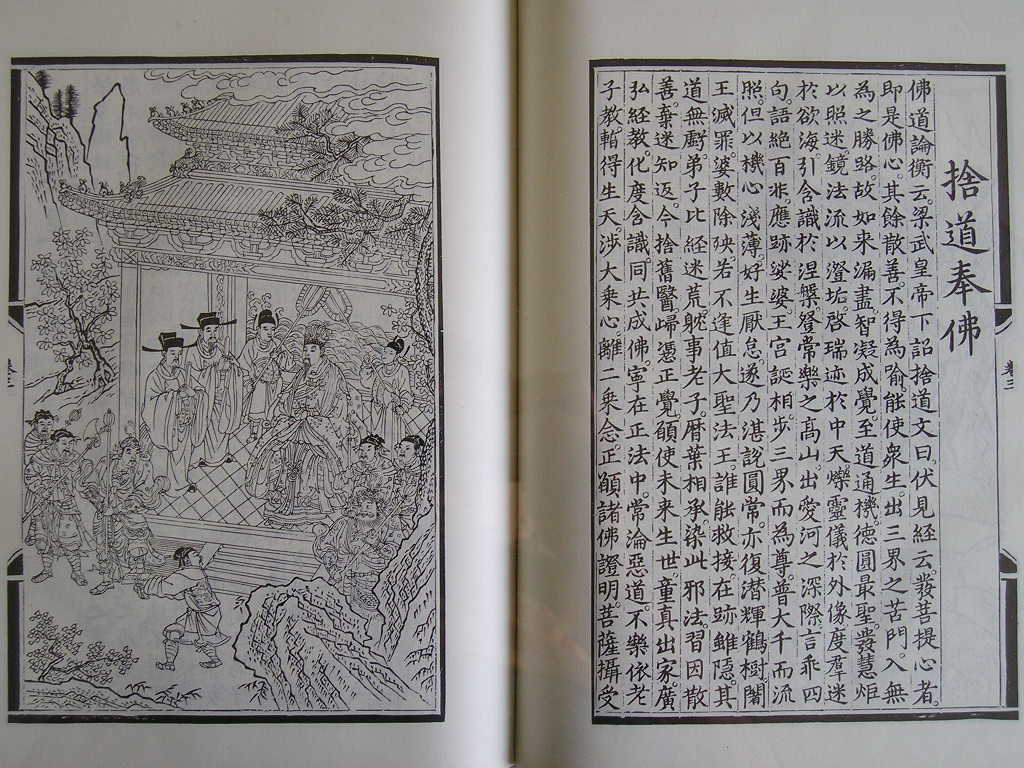 捨道奉佛
佛道論衡云。梁武皇帝下詔捨道文曰。伏見經云。發菩提心者。
即是佛心。其餘散善。不得為喻。能使眾生。出三界之苦門。入無
為之勝路。故如來漏盡。智凝成覺。至道通機。德圓最聖。發慧炬
以照迷。鏡法流以澄垢。啓瑞迹於中天。爍靈儀於外像。度羣迷
於欲海。引含識於涅槃。登常樂之高山。出愛河之深際。言乖四
句。語絕百非。應跡娑婆。王宮誕相。步三界而為尊。普大千而流
照。但以機心淺薄。好生厭怠。遂乃湛說圓常。亦復潛輝鶴樹。闍
王滅罪。婆數除殃。若不逢值大聖法王。誰能救接。在跡雖隱。其
道無虧。弟子比經迷荒。躭事老子。曆葉相承。染此邪法。習因散
善。棄迷知返。今捨舊醫。歸憑正覺。願使未來生世。童真出家。廣
弘經教。化度含識。同共成佛。寧在正法中。常淪惡道。不樂依老
子教。暫得生天。涉大乘心。離二乘念。正願諸佛證明。菩薩攝受
卷三